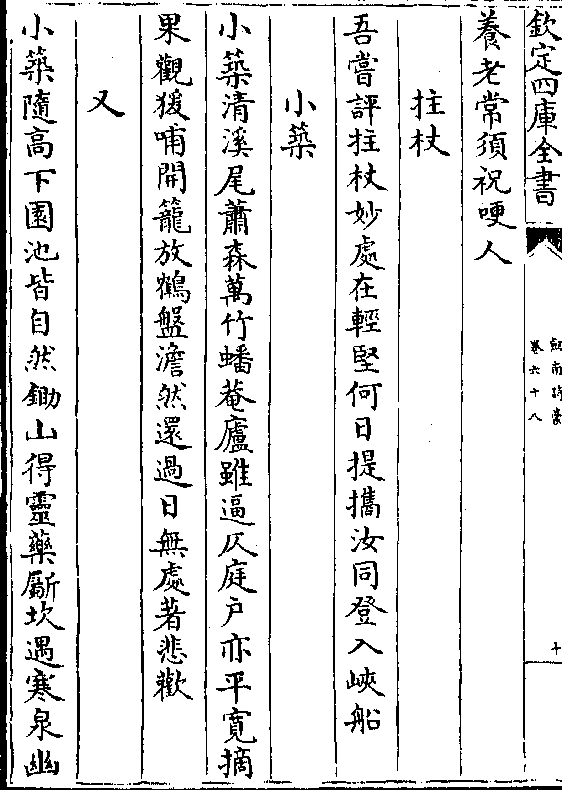 欽定四庫全書
劍南詩藁
卷六十八
十
養老常須祝哽人
拄杖
吾嘗評拄杖妙處在輕堅何日提攜汝同登入峽船
小築
小築清溪尾蕭森萬竹蟠菴廬雖逼仄庭户亦平寛摘
果觀猨哺開籠放鶴盤澹然還過日無處著悲歡
又
小築隨高下園池皆自然鋤山得靈藥斸坎遇寒泉幽